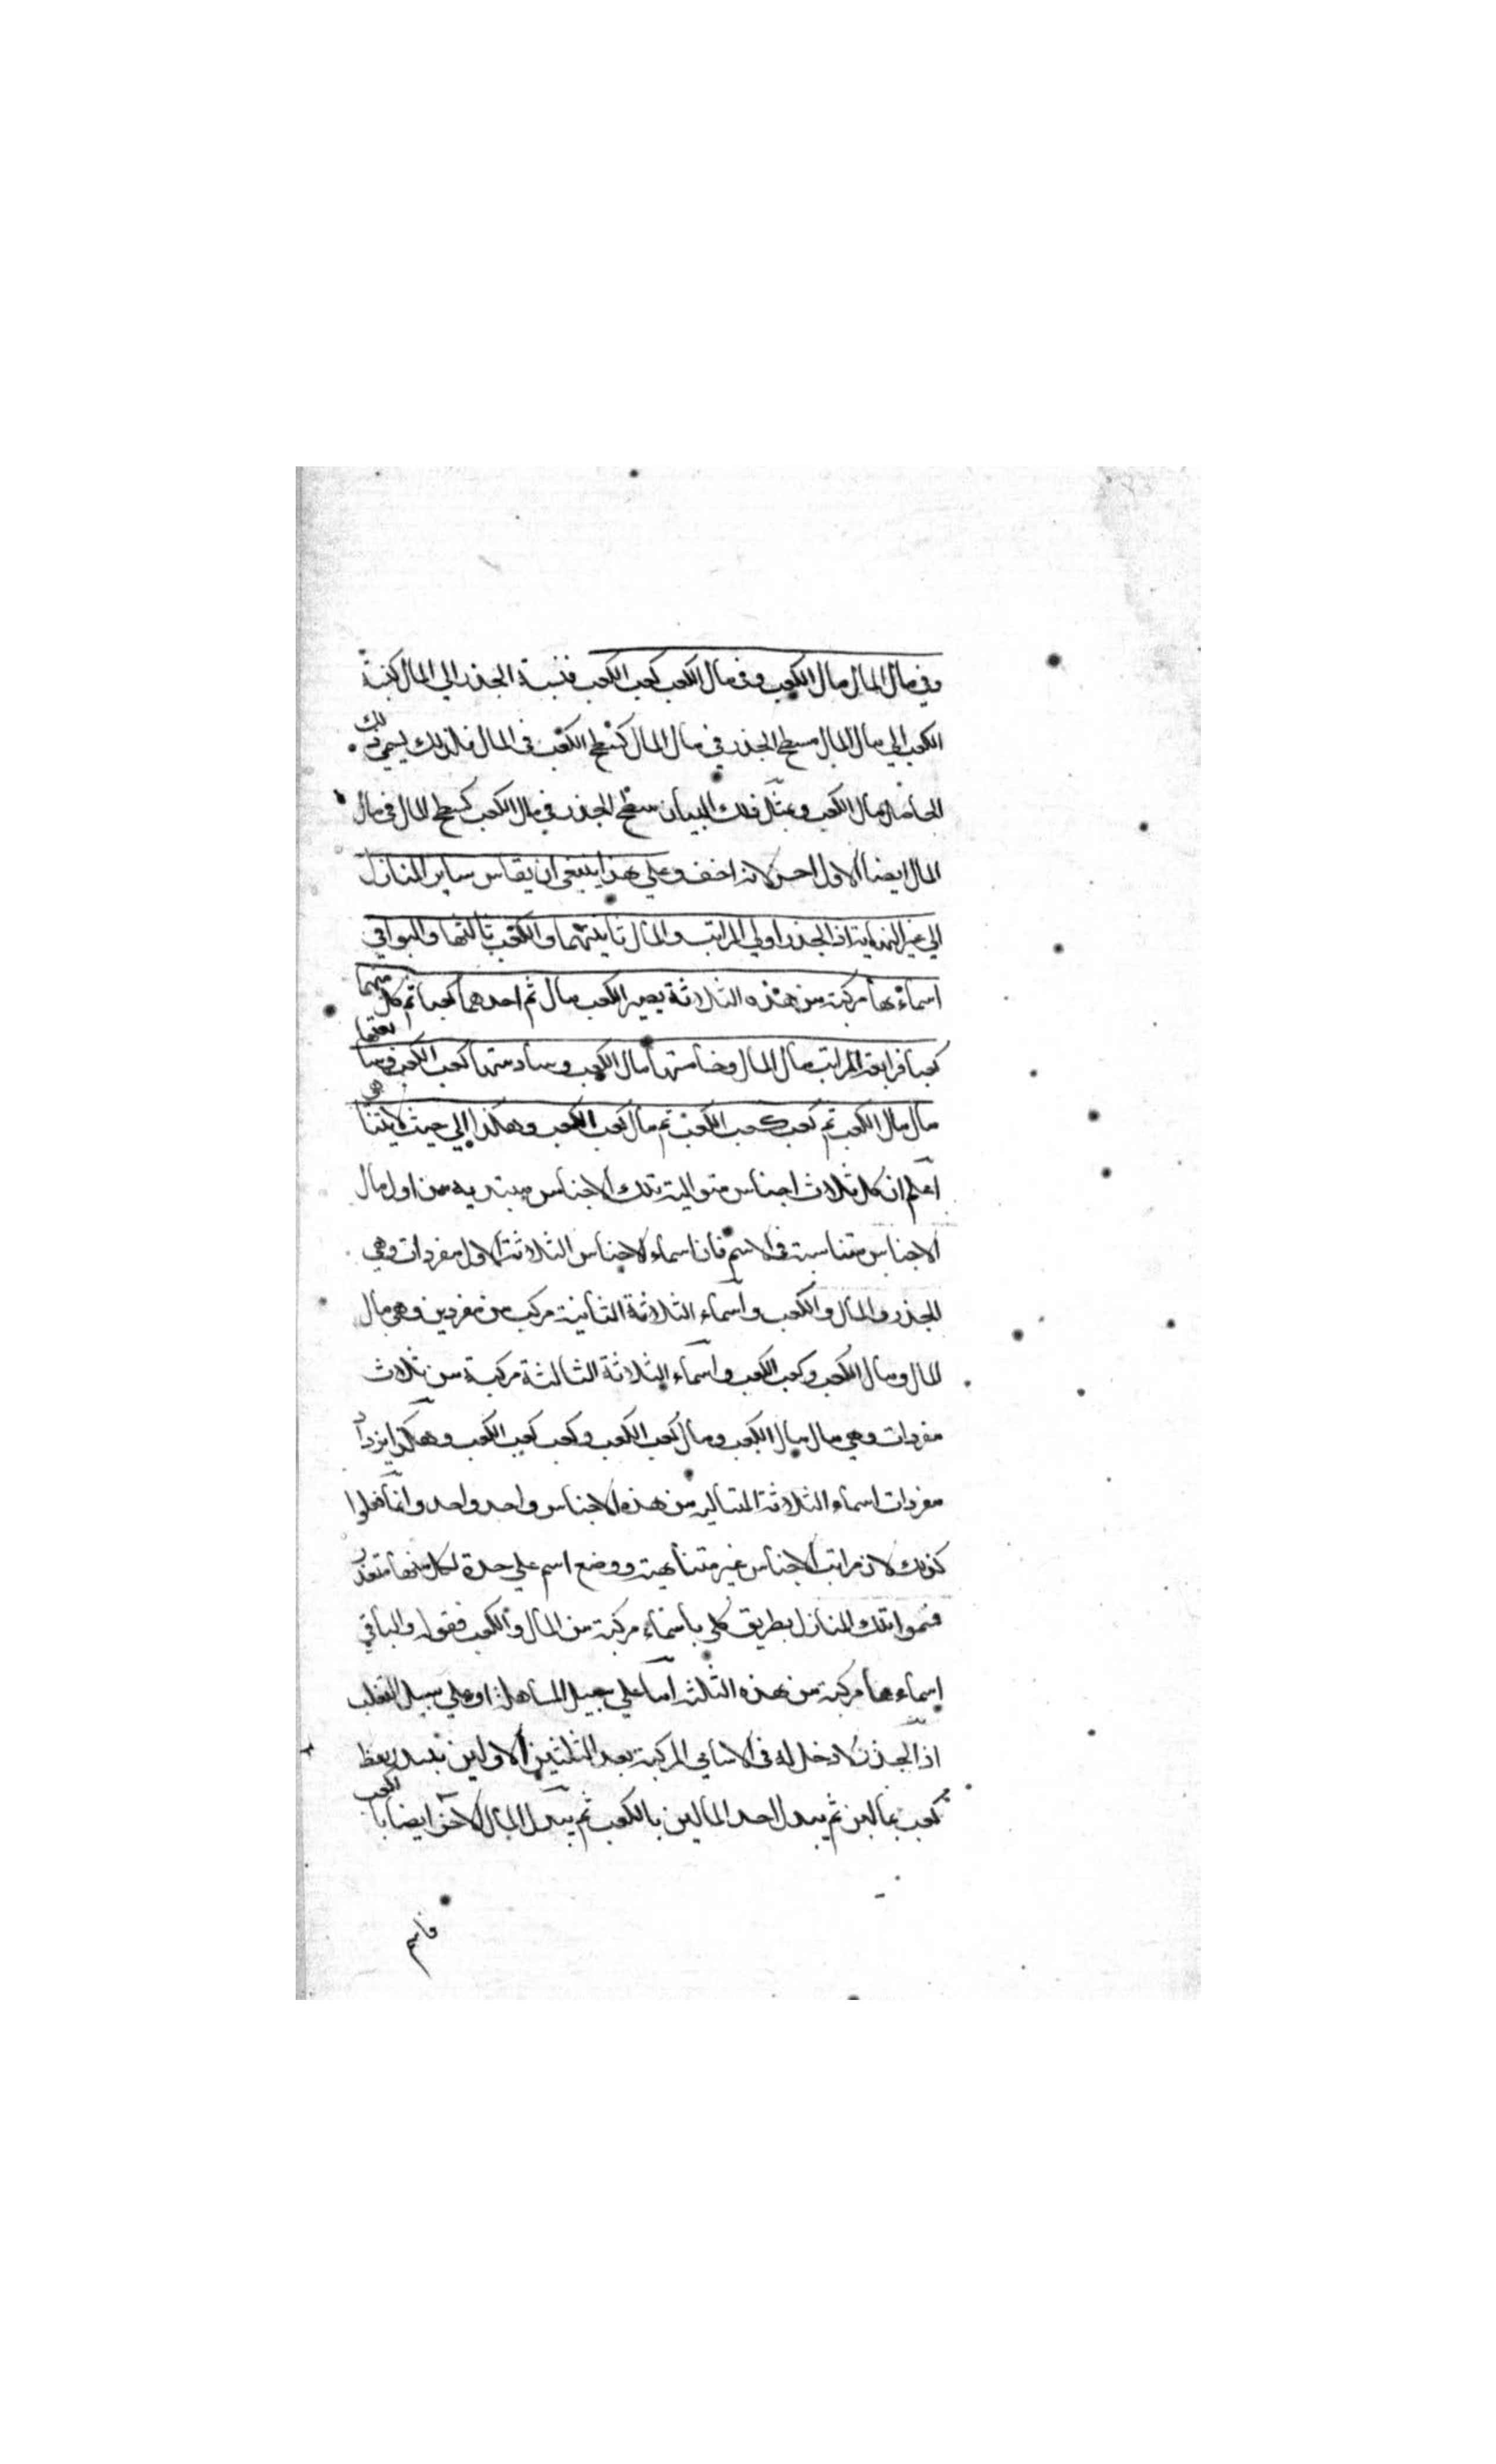 وفي مال المال مال الكعب وفى مال الكعب كعب الكعب فنسبة الجذر الى المال كنسبة
الكعب الي مال المال مسطح الجذر في مال المال كسطح الكعب في المال فلذلك يسمي ذلك
الحاصل بمال الكعب وبمثل ذلك البيان سطح الجذر في مال الكعب كسطح المال في مال
المال ايضا الاول احسن لانه اخف وعلي هذا ينبغي ان يقاس ساير المنازل
الي غير النهاية اذ الجذر اولي المراتب والمال ثانيتهما والكعب ثالثها والبواقي
اسماءها مركبة من هذه الثلاثة يصير الكعب مال ثم احدهما كعبا ثم كل منهما
كعبا فرابعة المراتب مال المال وخامستها مال الكعب وسادستها كعب الكعب وسابعتها
مال مال الكعب ثم كعب كعب الكعب ثم مال كعب الكعب وهكذا الي حيث لا يتناهي
اعلم ان كل ثلاث اجناس متوالية تلك الاجناس مبتديه من اول مال
الاجناس متناسبة في الاسم فان اسماء الاجناس الثلاثة الاول مفردات وهي
الجذر والمال والكعب واسماء الثلاثة الثانية مركب من مفردين وهي مال
المال ومال الكعب وكعب الكعب واسماء الثلاثة الثالثة مركبة من ثلاث
مفردات وهي مال مال الكعب ومال كعب الكعب وكعب كعب الكعب وهكذا يزداد
مفردات اسماء الثلاثة المتتالية من هذه الاجناس واحد واحد وانما فعلوا
كذلك لان مراتب الاجناس غير متناهية ووضع اسم علي حدة لكل منها متعذر
فسموا تلك المنازل بطريق كلي باسماء مركبة من المال والكعب فقوله والباقي
اسماءها مركبة من هذه الثلثة اما علي سبيل المساهلة او علي سبيل التغلب
اذ الجذر لا دخل له في الاسامي المركبة بعد الثلثين الاولين يبدل لفظ
كعب بمالين ثم يبدل احد المالين بالكعب ثم يبدل المال الاخر ايضا بالكعب
قاسم